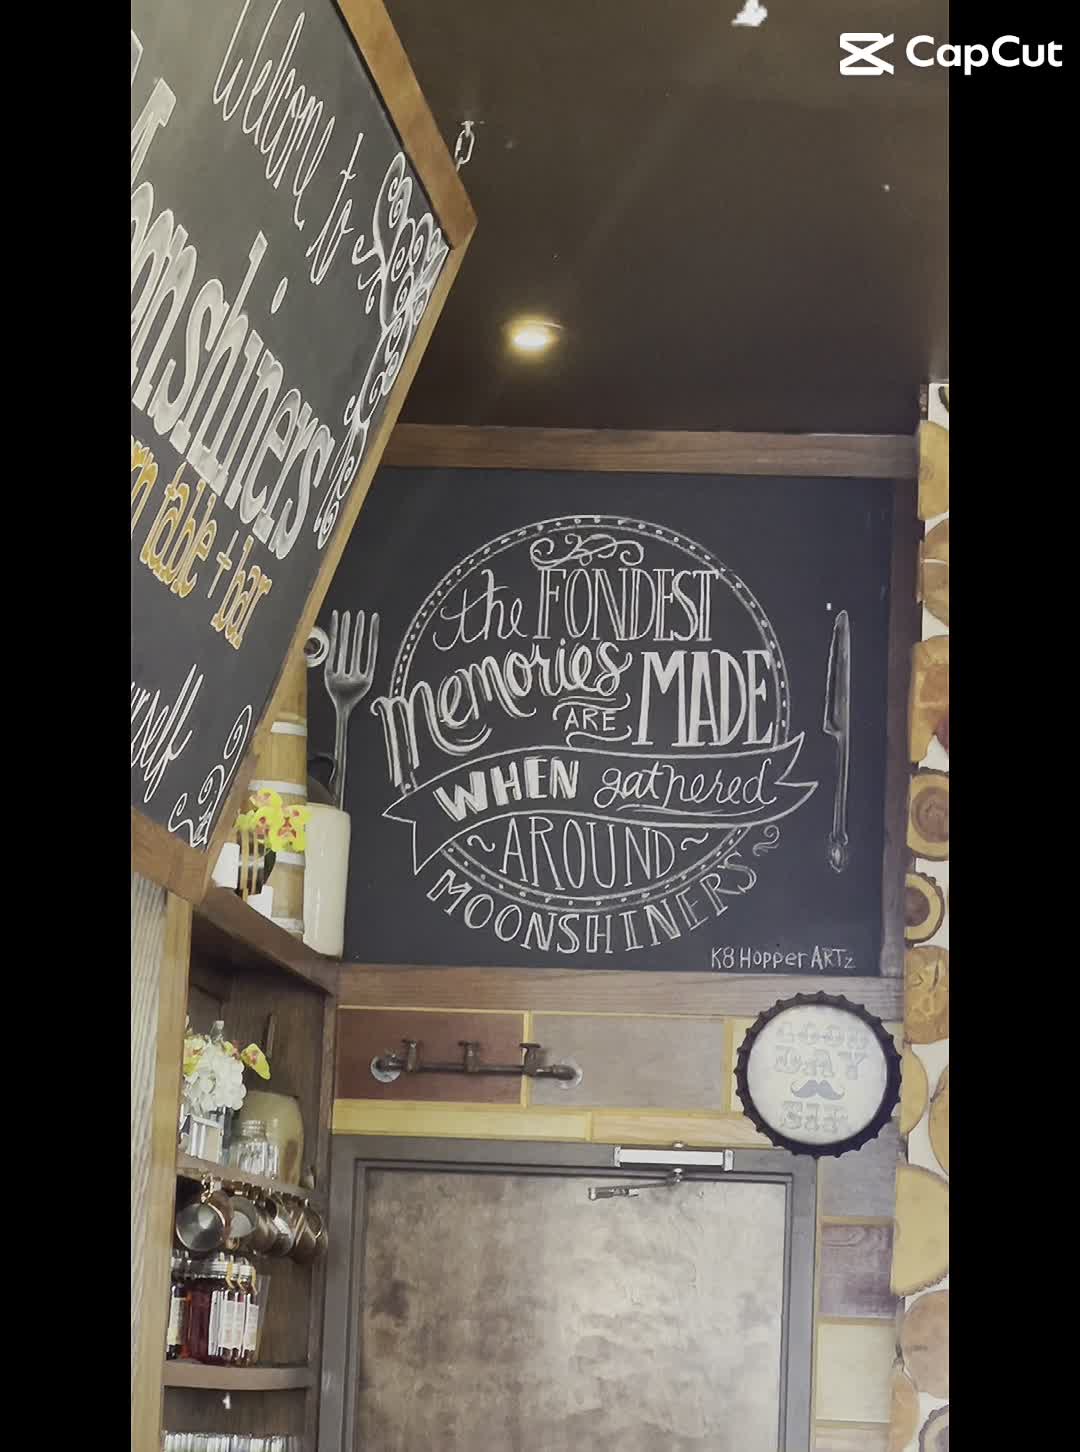 CapCut
Welcome to
Moonshiners
table + bar
the FONDEST
memories ARE MADE
WHEN gathered
~AROUND~
MOONSHINERS
K8 HOpper ARTz
GOOD
DAY
SIR